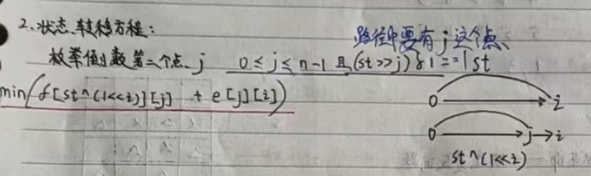 2、状态转移方程：
路径中要有j这个点、
枚举倒数第二个点、j 0≤j≤n-1 且 (st>>j)&1==1 st
min(f[st^(1<<i)][j] + e[j][i])
0 i
0 j i
st^(1<<i)